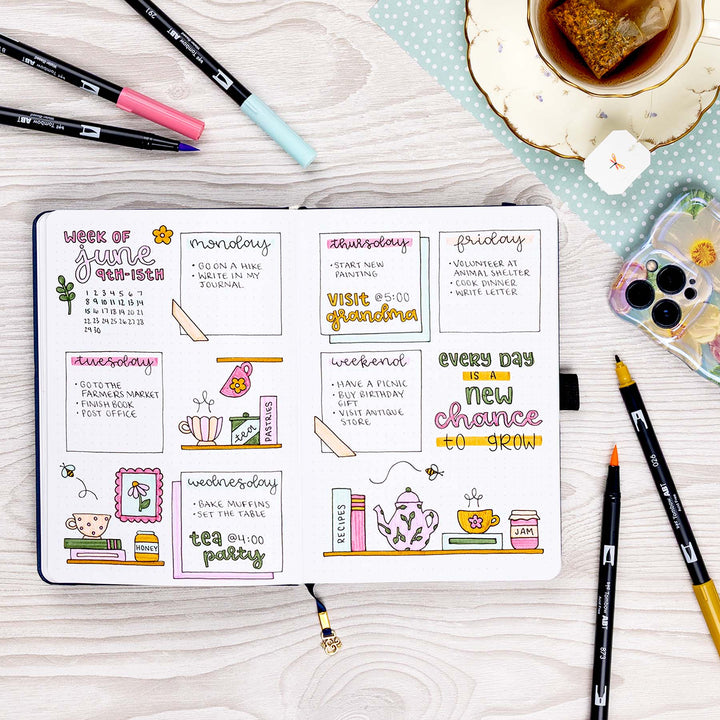 WEEK OF
june
9TH-15TH
1 2 3 4 5 6 7
8 9 10 11 12 13 14
15 16 17 18 19 20 21
22 23 24 25 26 27 28
29 30
monday
• GO ON A HIKE
• WRITE IN MY
JOURNAL
tuesday
• GO TO THE
FARMERS MARKET
• FINISH BOOK
• POST OFFICE
tea
PASTRIES
HONEY
wednesday
• BAKE MUFFINS
• SET THE TABLE
tea @4:00
party
thursday
• START NEW
PAINTING
VISIT @5:00
grandma
friday
• VOLUNTEER AT
ANIMAL SHELTER
• COOK DINNER
• WRITE LETTER
weekend
• HAVE A PICNIC
• BUY BIRTHDAY
GIFT
• VISIT ANTIQUE
STORE
EVERY DAY
IS A
NEW
chance
TO GROW
RECIPES
JAM
291
Tombow ABT
Tombow ABT
026
Tombow ABT
873